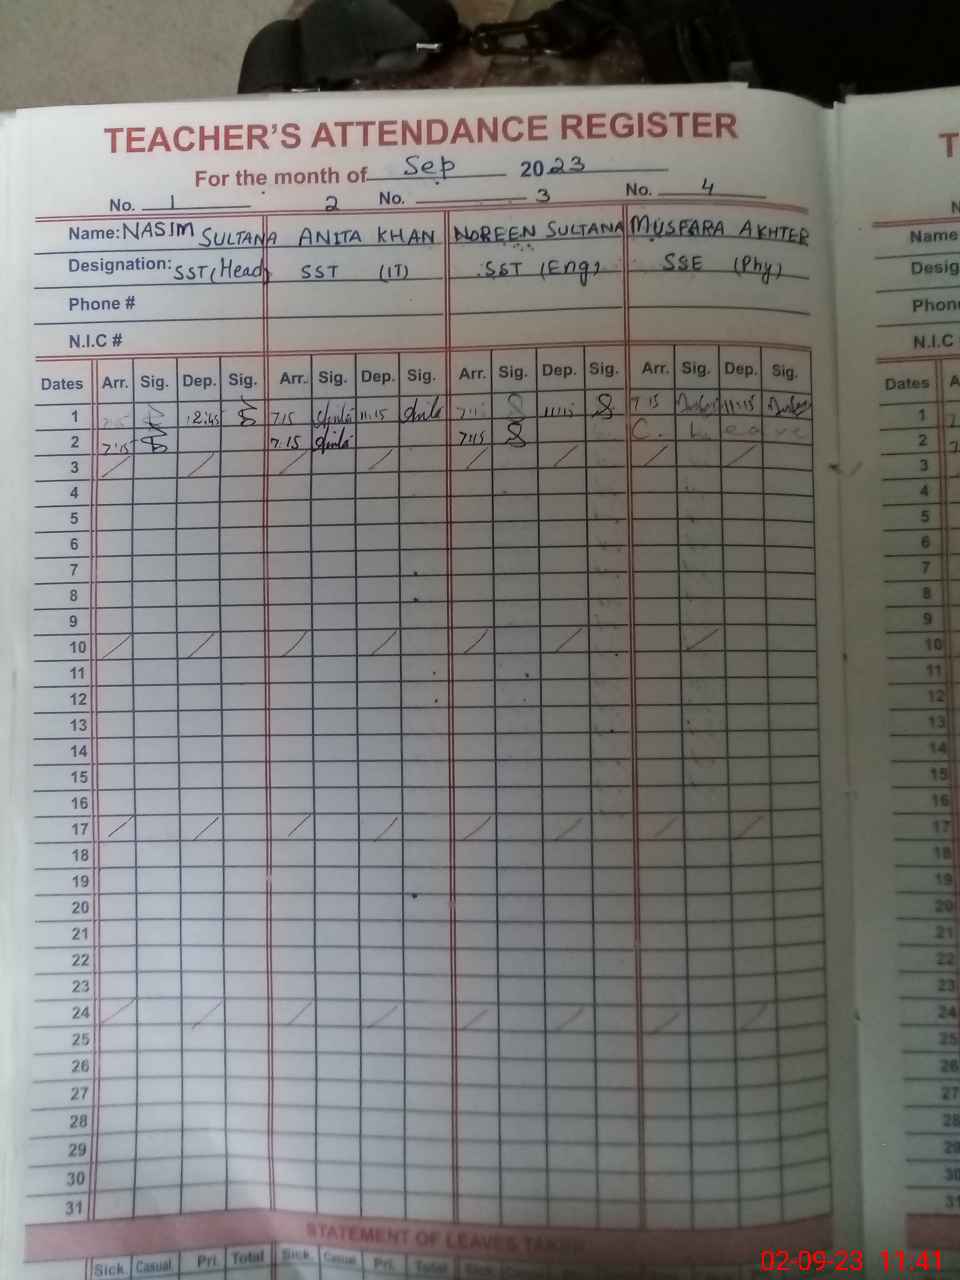 TEACHER'S ATTENDANCE REGISTER
For the month of Sep 2023
No. 1 2 No. 3 No. 4
Name: NASIM SULTANA ANITA KHAN NOREEN SULTANA MUSFARA AKHTER
Designation: SST (Head) SST (IT) SST (Eng) SSE (Phy)
Phone #
N.I.C #
Dates Arr. Sig. Dep. Sig. Arr. Sig. Dep. Sig. Arr. Sig. Dep. Sig. Arr. Sig. Dep. Sig.
1 12:45 7:15 Anita 11:15 Anita 11:15 7 15 11:15
2 7:15 7:15 Anita 7:15 C. Leave
3
4
5
6
7
8
9
10
11
12
13
14
15
16
17
18
19
20
21
22
23
24
25
26
27
28
29
30
31
STATEMENT OF LEAVES TAKEN
Sick. Casual. Pri. Total Sick. Casual. Pri. Total Sick.
T
Name
Desig
Phon
N.I.C
Dates A
1
2
3
4
5
6
7
8
9
10
11
12
13
14
15
16
17
18
19
20
21
22
23
24
25
26
27
28
29
30
31
02-09-23 11:41